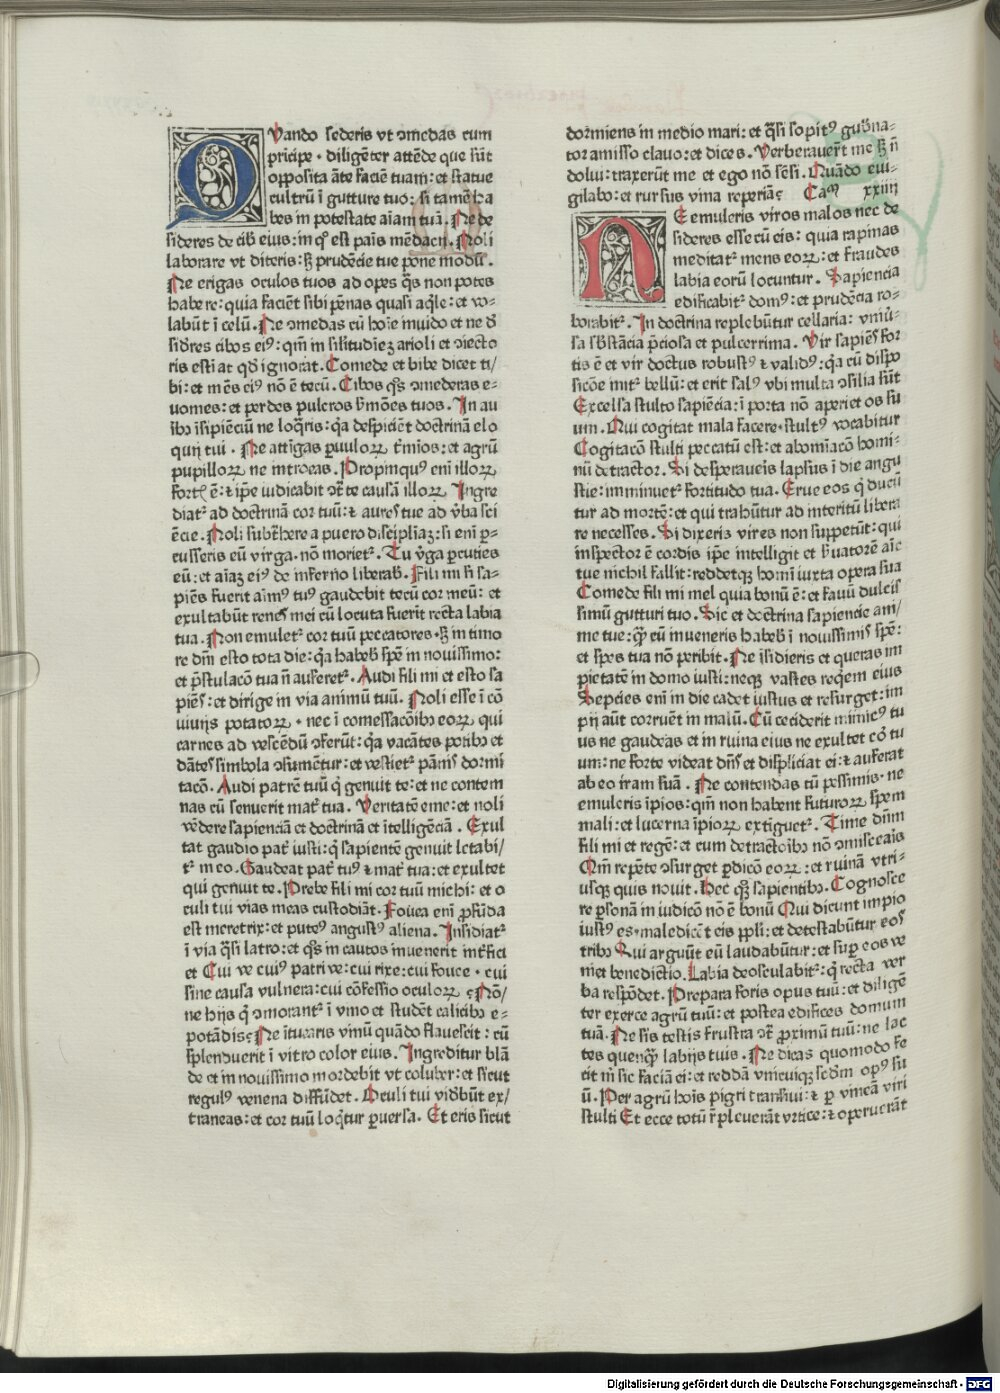 Quando sederis vt ↄmedas cum
pricipe · diligēter attēde que sūt
opposita āte faciē tuam: et statue
cultrū ī gutture tuo: si tamē ha
bes in potestate aīam tuā. Ne de
sideres de cib eius: in qͦ est panis mēdacij. Noli
laborare vt diteris: sʒ prudēcie tue pone modū.
Ne erigas oculos tuos ad opes qͣs non potes
habere: quia faciēt sibi pēnas quasi aqͥle: et vo-
labūt ī celū. Ne ↄmedas cū hoīe inuido et ne dͤ
sidͤres cibos eiꝰ: qm̄ in sil̄itudieʒ arioli et ↄiecto
ris estīat qd̓ ignorat. Comede et bibe dicet ti/
bi: et mēs eiꝰ nō ē tecū. Cibos qͦs ↄmederas e-
uomes: et perdes pulcros sͤmōes tuos. In au
ribꝫ īsipiēciū ne loqͣris: qͥa despiciēt doctrinā elo
quij tui. Ne attigas ꝑuuloꝝ tͤmīos: et agrū
pupilloꝝ ne introeas. Propinqꝰ enī illoꝝ
fortꝭ ē: ⁊ ip̄e iudicabit ↄtͣ te causā illoꝝ Ingre
diatᷣ ad doctrinā cor tuū: ⁊ aures tue ad vͤba sci
ēcie. Noli subtͣhere a puero discipliaʒ: si enī ꝑ-
cusseris eū virga. nō morietᷣ. Tu vͥga ꝑcuties
eū: et aīaʒ eiꝰ de inferno liberab̓. Fili mi si sa-
piēs fuerit aīmꝰ tuꝰ gaudebit tecū cor meū: et
exultabūt renes mei cū locuta fuerit recta labia
tua. Non emuletᷣ cor tuū peccatores. sʒ in timo
re dn̄i esto tota die: qͥa habebꝭ spē in nouissimo:
et p̄stulacō tua n̄ auferetᷣ. Audi fili mi et esto sa
piēs: et dirige in via animū tuū. Noli esse ī cō
uiuijs potatoꝝ · nec ī comessacōibꝫ eoꝝ qui
carnes ad vescēdū ↄferūt: qͥa vacātes potibꝫ et
dātes simbola ↄsumētur: et vestietᷣ pānis dormi
tacō. Audi patrē tuū qͥ genuit te: et ne contem
nas cū senuerit matͬ tua. Veritatē eme: et noli
vēdere sapienciā et doctrinā et ītelligēciā. Exul
tat gaudio patͬ iusti: qͥ sapientē genuit letabi/
tᷣ in eo. Gaudeat patͬ tuꝰ ⁊ matͬ tua: et exultet
qui genuit te. Prebe fili mi cor tuū michi: et o
culi tui vias meas custodiāt. Fouea enī ꝓfūda
est meretrix: et puteꝰ angustꝰ aliena. Insidiatᷣ
ī via qͣsi latro: et qͦs in cautos inuenerit intͤfici
et Cui ve cuiꝰ patri ve: cui rixe: cui fouee · cui
sine causa vulnera: cui cōfessio oculoꝝ Nō/
ne hijs qͥ ↄmorantᷣ ī vino et studēt calicibꝫ e-
potādis Ne ītuearis vinū quādo flauescit: cū
splenduerit ī vitro color eius. Ingreditur blā
de et in nouissimo mordebit vt coluber: et sicut
regulꝰ venena diffūdet. Oculi tui vidͤbūt ex/
traneas: et cor tuū loqͤtur ꝑuersa. Et eris sicut
dormiens in medio mari: et qͣsi sopitꝰ gubͤna-
tor amisso clauo: et dices. Verberauerūt me sʒ n̄
dolui: traxerūt me et ego nō sēsi. Quādo eui-
gilabo: et rursus vina reperiā Caᵐ xxiiij
Ne emuleris viros malos nec de
sideres esse cū eis: quia rapinas
meditatᷣ mens eoꝝ: et fraudes
labia eorū locuntur. Sapiencia
edificabitᷣ domꝰ: et prudēcia ro-
borabitᷣ. In doctrina replebūtur cellaria: vniū-
sa sbͣstācia p̄ciosa et pulcerrima. Vir sapiēs for
tis ē et vir doctus robustꝰ ⁊ validꝰ: qͥa cū dispo
sicōe initᷣ bellū: et erit salꝰ vbi multa ↄsilia sūt
Excelsa stulto sapiēcia: ī porta nō aperiet os su
um. Qui cogitat mala facere. stultꝰ vocabitur
Cogitacō stulti peccatū est: et abomīacō homi-
nū detractor. Si desperaueis lapsus ī die angu
stie: imminuetᷣ fortitudo tua. Erue eos qͥ ducū
tur ad mortē: et qui trahūtur ad interitū libera
re necesses. Si dixeris vires non suppetūt: qui
inspector ē cordis ip̄e intelligit et sͤuatorē aīe
tue nichil fallit: reddetqꝫ homī iuxta opera sua
Comede fili mi mel quia bonū ē: et fauū dulcis
simū gutturi tuo. Sic et doctrina sapiencie ani/
me tue: qͣ cū inueneris habebꝭ ī nouissimis spē:
et spes tua nō peribit. Ne īsidieris et queras im
pietatē in domo iusti: neqꝫ vastes reqͥem eius
Septies enī in die cadet iustus et resurget: im
pij aūt corruēt in malū. Cū ceciderit inimicꝰ tu
us ne gaudeas et in ruina eius ne exultet coͬ tu
um: ne forte videat dn̄s et displiciat ei: ⁊ auferat
ab eo iram suā. Ne contendas cū pessimis. ne
emuleris īpios: qm̄ non habent futuroꝝ spem
mali: et lucerna īpioꝝ extīguetᷣ. Time dn̄m
fili mi et regē: et cum detractoibꝫ nō ↄmiscearis
Qm̄ repēte ↄsurget ꝑdicō eoꝝ: et ruinā vtri-
usqꝫ quis nouit. Hec qͦqꝫ sapientibꝫ. Cognosce
re ꝑsonā in iudicō nō ē bonū Qui dicunt impio
iustꝰ es. maledicēt eis ppl̓i: et detestabūtur eos
tribꝫ Qui arguūt eū laudabūtur: et suꝑ eos ve
niet benedictio. Labia deosculabitᷣ: qͥ recta ver
ba respōdet. Prepara foris opus tuū: et diligē
ter exerce agrū tuū: et postea edifices domum
tuā. Ne sis testis frustra ↄtͣ ꝓximū tuū: ne lac
tes quenqͣ labijs tuis. Ne dicas quomodo fe
cit mͥ sic faciā ei: et reddā vnicuiqꝫ scd̓m opꝰ su
ū. Per agrū hoīs pigri transiui: ⁊ ꝑ vineā viri
stulti Et ecce totū rͤpleuerāt vrtice: ⁊ operuerāt
Digitalisierung gefördert durch die Deutsche Forschungsgemeinschaft - DFG